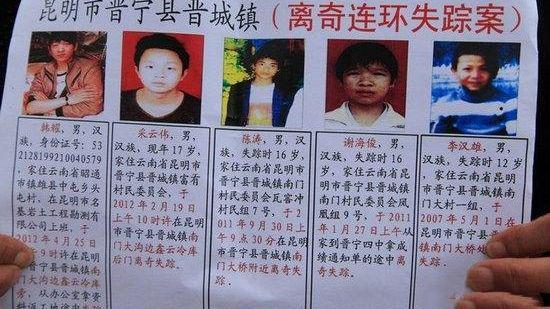 昆明市晋宁县晋城镇（离奇连环失踪案）
韩耀，男，汉
族，身份证号：53
2128199210040579
，家住云南省昭通
市镇雄县中屯乡头
屯村，在昆明市名
基岩土工程勘测有
限公司上班，于
2012年4月25日
9时许在昆明
南门大沟边鑫云冷库
旁，从办公室拿资
采云伟，男，汉
族，现年17岁，
家住云南省昆明市
晋宁县晋城镇富有
村民委员会，于
2012年2月19日
上午10时许在昆明
市晋宁县晋城镇南
门大沟边鑫云冷库
后门离奇失踪。
陈涛，男，汉
族，失踪时16岁，
家住云南省昆明市
晋宁县晋城镇南门
村民委员会瓦窑冲
村民组7号，于2
011年9月30日上午
9点30分在昆明市
晋宁县晋城镇南门
大桥附近离奇失
踪。
谢海俊，男，
汉族，失踪时16
岁，家住云南省昆
明市晋宁县晋城镇
南门村民委员会凤
凰组9号，于2011
年1月27日从
家到晋宁四中拿成
绩通知单的途中离
奇失踪。
李汉雄，男，
汉族，失踪时12岁
，家住云南省昆明
市晋宁县晋城镇南
门大村一组，于
2007年5月1日在
晋城镇
南门大桥
离奇失踪。